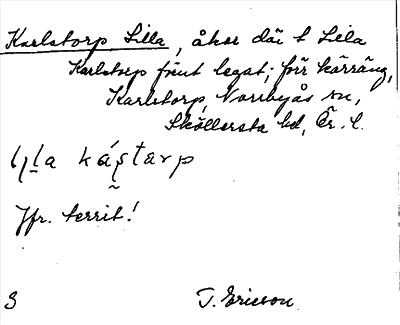 Karlstorp Lilla, åker där t Lilla
Karlstorp förut legat; förr kärräng,
Karlstorp, Norrbyås sn,
Sköllersta hd, Ör. l.
Jfr. territ!
3 T. Ericson